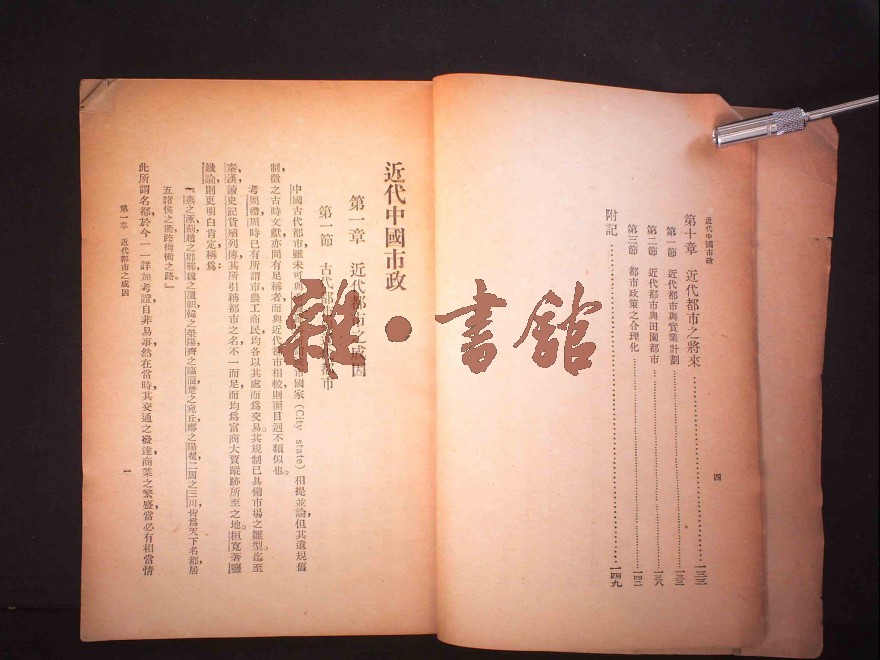 近代中國市政
第十章 近代都市之將來……一三三
第一節 近代都市與實業計劃……一三三
第二節 近代都市與田園都市……一三八
第三節 都市政策之合理化……一四二
附記……一四九
四
近代中國市政
第一章 近代都市之成因
第一節 古代都市
中國古代都市雖未可與國家(City state)相提並論但其遺規舊
制徵之古時文獻亦間有足稱者而與近代都市相較則面目迥不類似也。
考周禮周時已有所謂市農工商民均各以其處而爲交易其規制已具備市場之雛型。迄至
秦漢讀史記貨殖列傳其所引稱都市之名不一而足而均爲富商大賈蹤跡所至之地。桓寬著鹽
鐵論則更明白肯定稱爲:
『燕之涿薊趙之邯鄲魏之溫軹韓之滎陽齊之臨淄楚之宛丘鄭之陽翟二周之三川皆爲天下名都居
五諸侯之衢跨街衝之路。』
此所謂名都於今一一詳加考證自非易事然在當時其交通之發達商業之繁盛當必有相當情
第一章 近代都市之成因
一
雜·書館